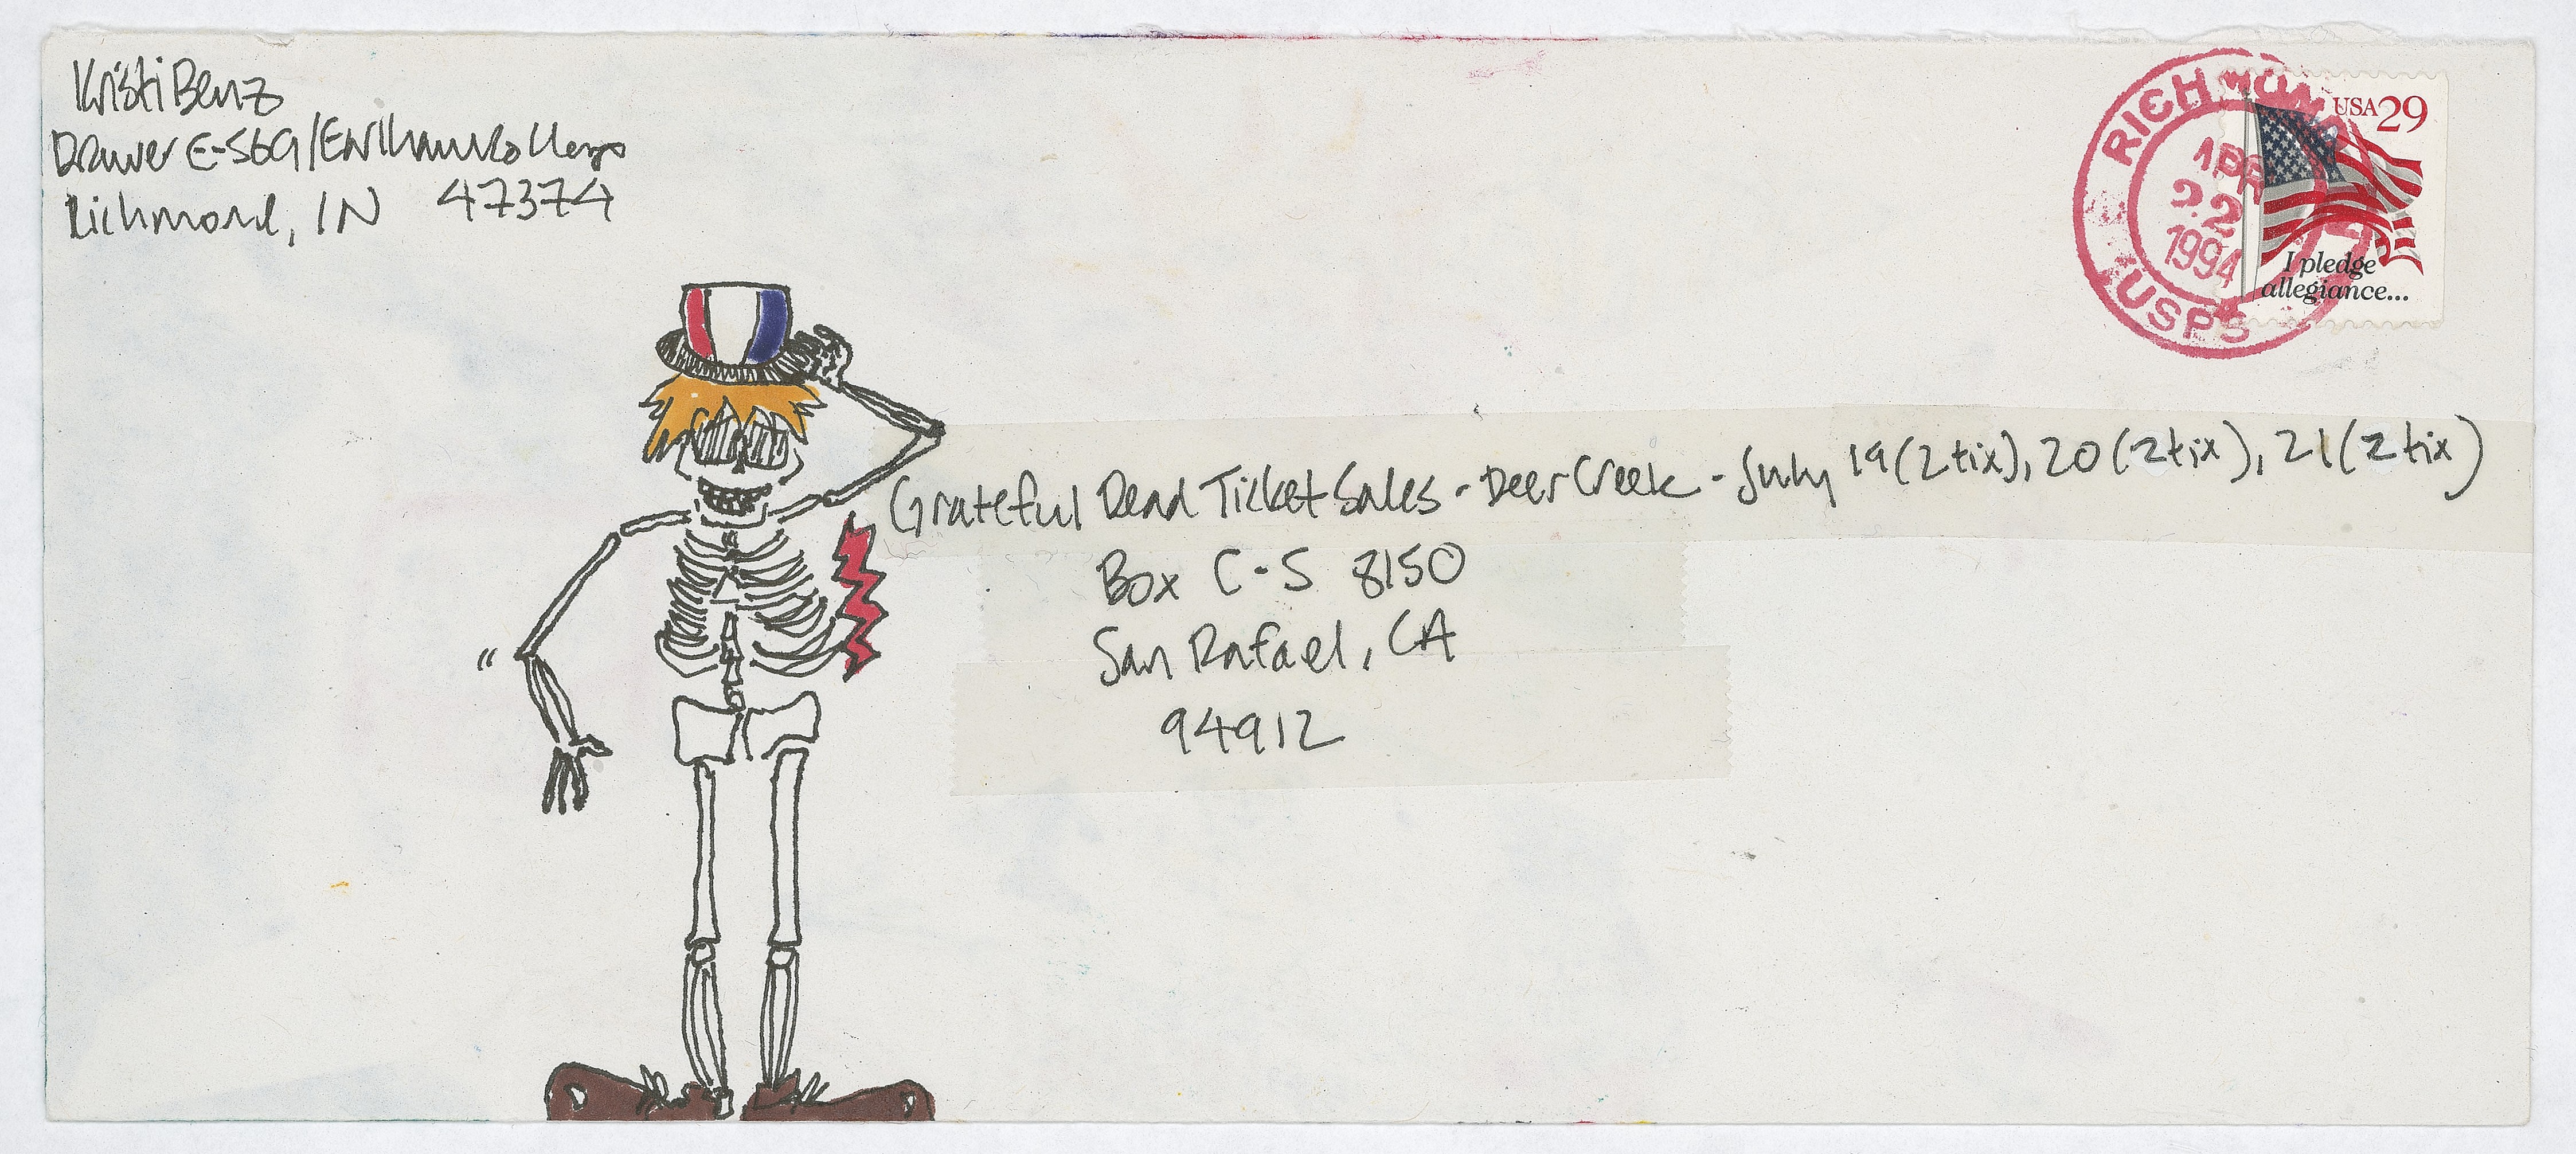 Kristi Benz
Drawer E-569/Earlham College
Richmond, IN 47374
RICHMOND
APR
22
1994
USPS
USA 29
I pledge
allegiance...
Grateful Dead Ticket Sales - Deer Creek - July 19 (2 tix), 20 (2 tix), 21 (2 tix)
Box C-S 8150
San Rafael, CA
94912